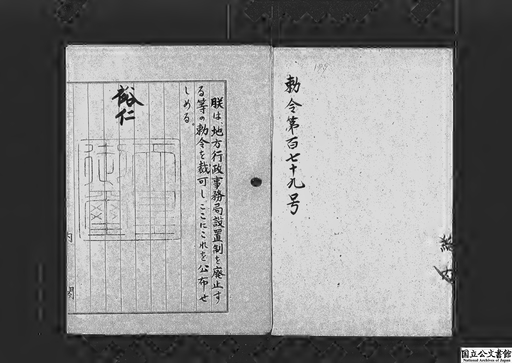 勅令第百七十九号
朕は地方行政事務局設置制を廃止す
る等の勅令を裁可しここにこれを公布せ
しめる。
裕仁
内閣
国立公文書館
National Archives of Japan